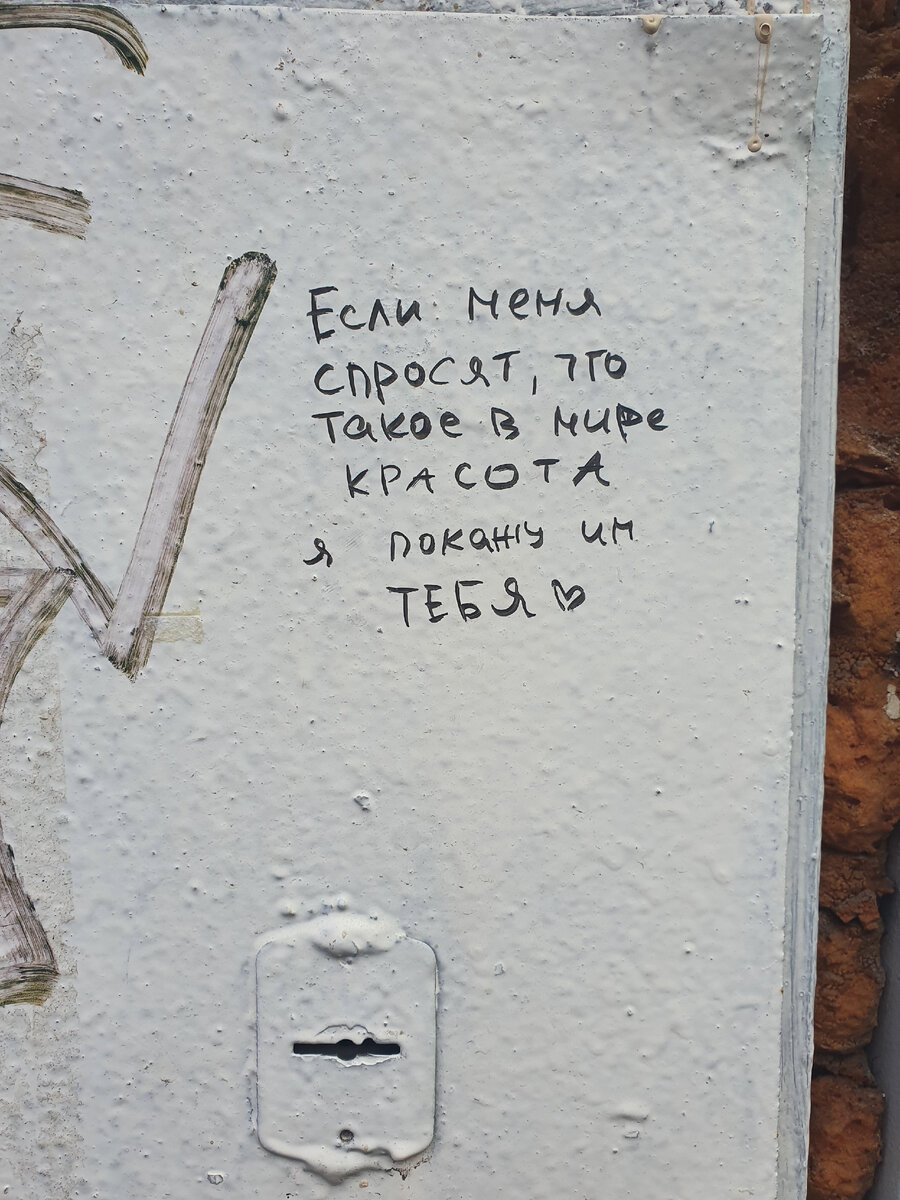 Если меня
спросят, что
такое в мире
КРАСОТА
я покажу им
ТЕБЯ ♡